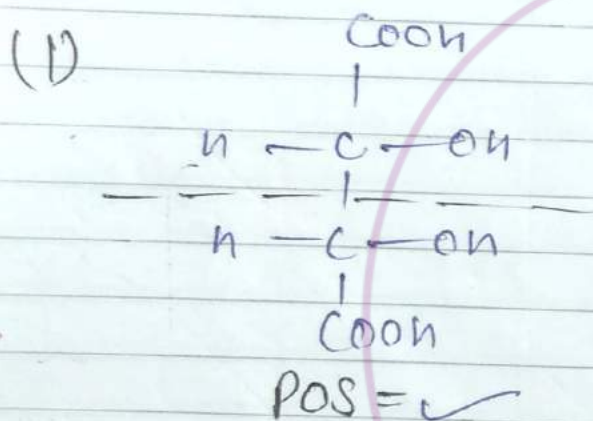 (1)
COOH
|
H — C — OH
— — — | — — — —
H — C — OH
|
COOH
POS = ✓